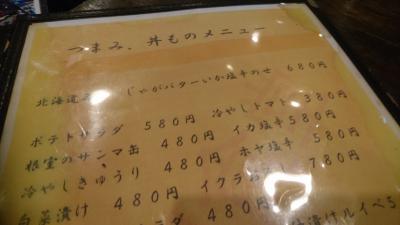 つまみ、丼ものメニュー
北海道 じゃがバターいか塩辛のせ 680円
ポテトサラダ 580円 冷やしトマト 380円
根室のサンマ缶 480円 イカ塩辛 580円
冷やしきゅうり 480円 ホヤ塩辛 580円
白菜漬け 480円 イクラおろし 780円
ラダ 480円 漬けルイベ